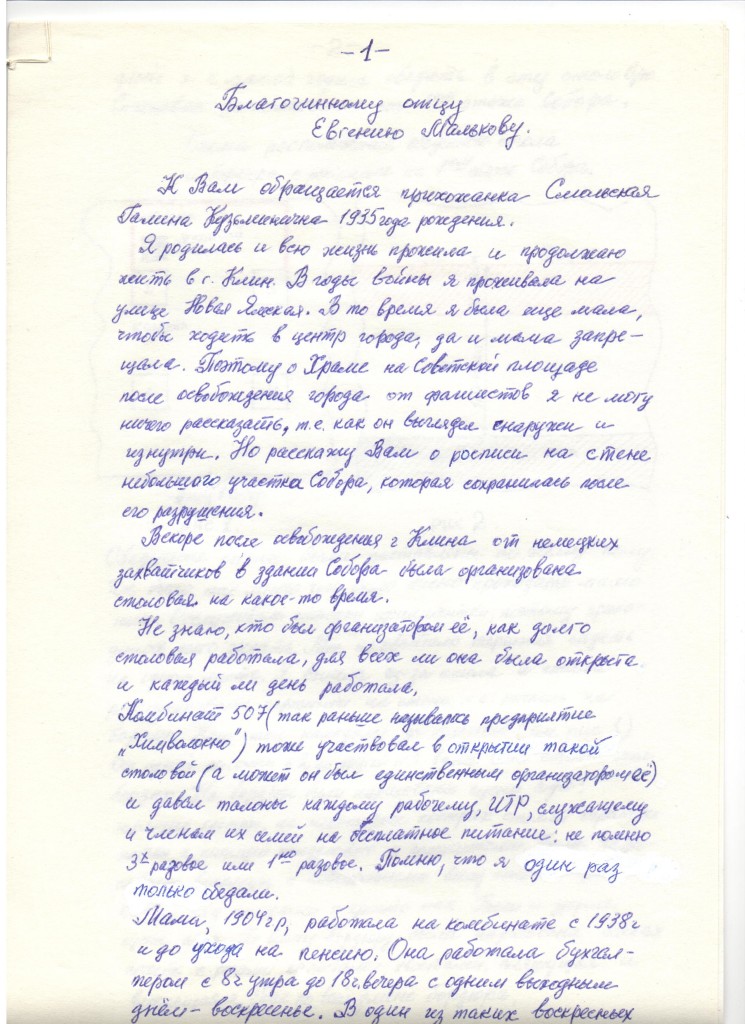 -1-
Благочинному отцу
Евгению Малькову.
К Вам обращается прихожанка Смольская
Галина Кузьминична 1935 года рождения.
Я родилась и всю жизнь прожила и продолжаю
жить в г. Клин. В годы войны я проживала на
улице Новая Ямская. В то время я была еще мала,
чтобы ходить в центр города, да и мама запре-
щала. Поэтому о Храме на Советской площаде
после освобождения города от фашистов я не могу
ничего рассказать, т.е. как он выглядел снаружи и
изнутри. Но расскажу Вам о росписи на стене
небольшого участка Собора, которая сохранилась после
его разрушения.
Вскоре после освобождения г Клина от немецких
захватчиков в здании Собора была организована
столовая на какое-то время.
Не знаю, кто был организатором её, как долго
столовая работала, для всех ли она была открыта
и каждый ли день работала,
Комбинат 507 (так раньше называлось предприятие
„Химволокно") тоже участвовал в открытии такой
столовой (а может он был единственным организатором её)
и давал талоны каждому рабочему, ИТР, служащему
и членам их семей на бесплатное питание: не помню
3х разовое или 1но разовое. Помню, что я один раз
только обедали.
Мама, 1904г р, работала на комбинате с 1938г
и до ухода на пенсию. Она работала бухгал-
тером с 8ч утра до 18г. вечера с одним выходным
днём - воскресенье. В один из таких воскресных